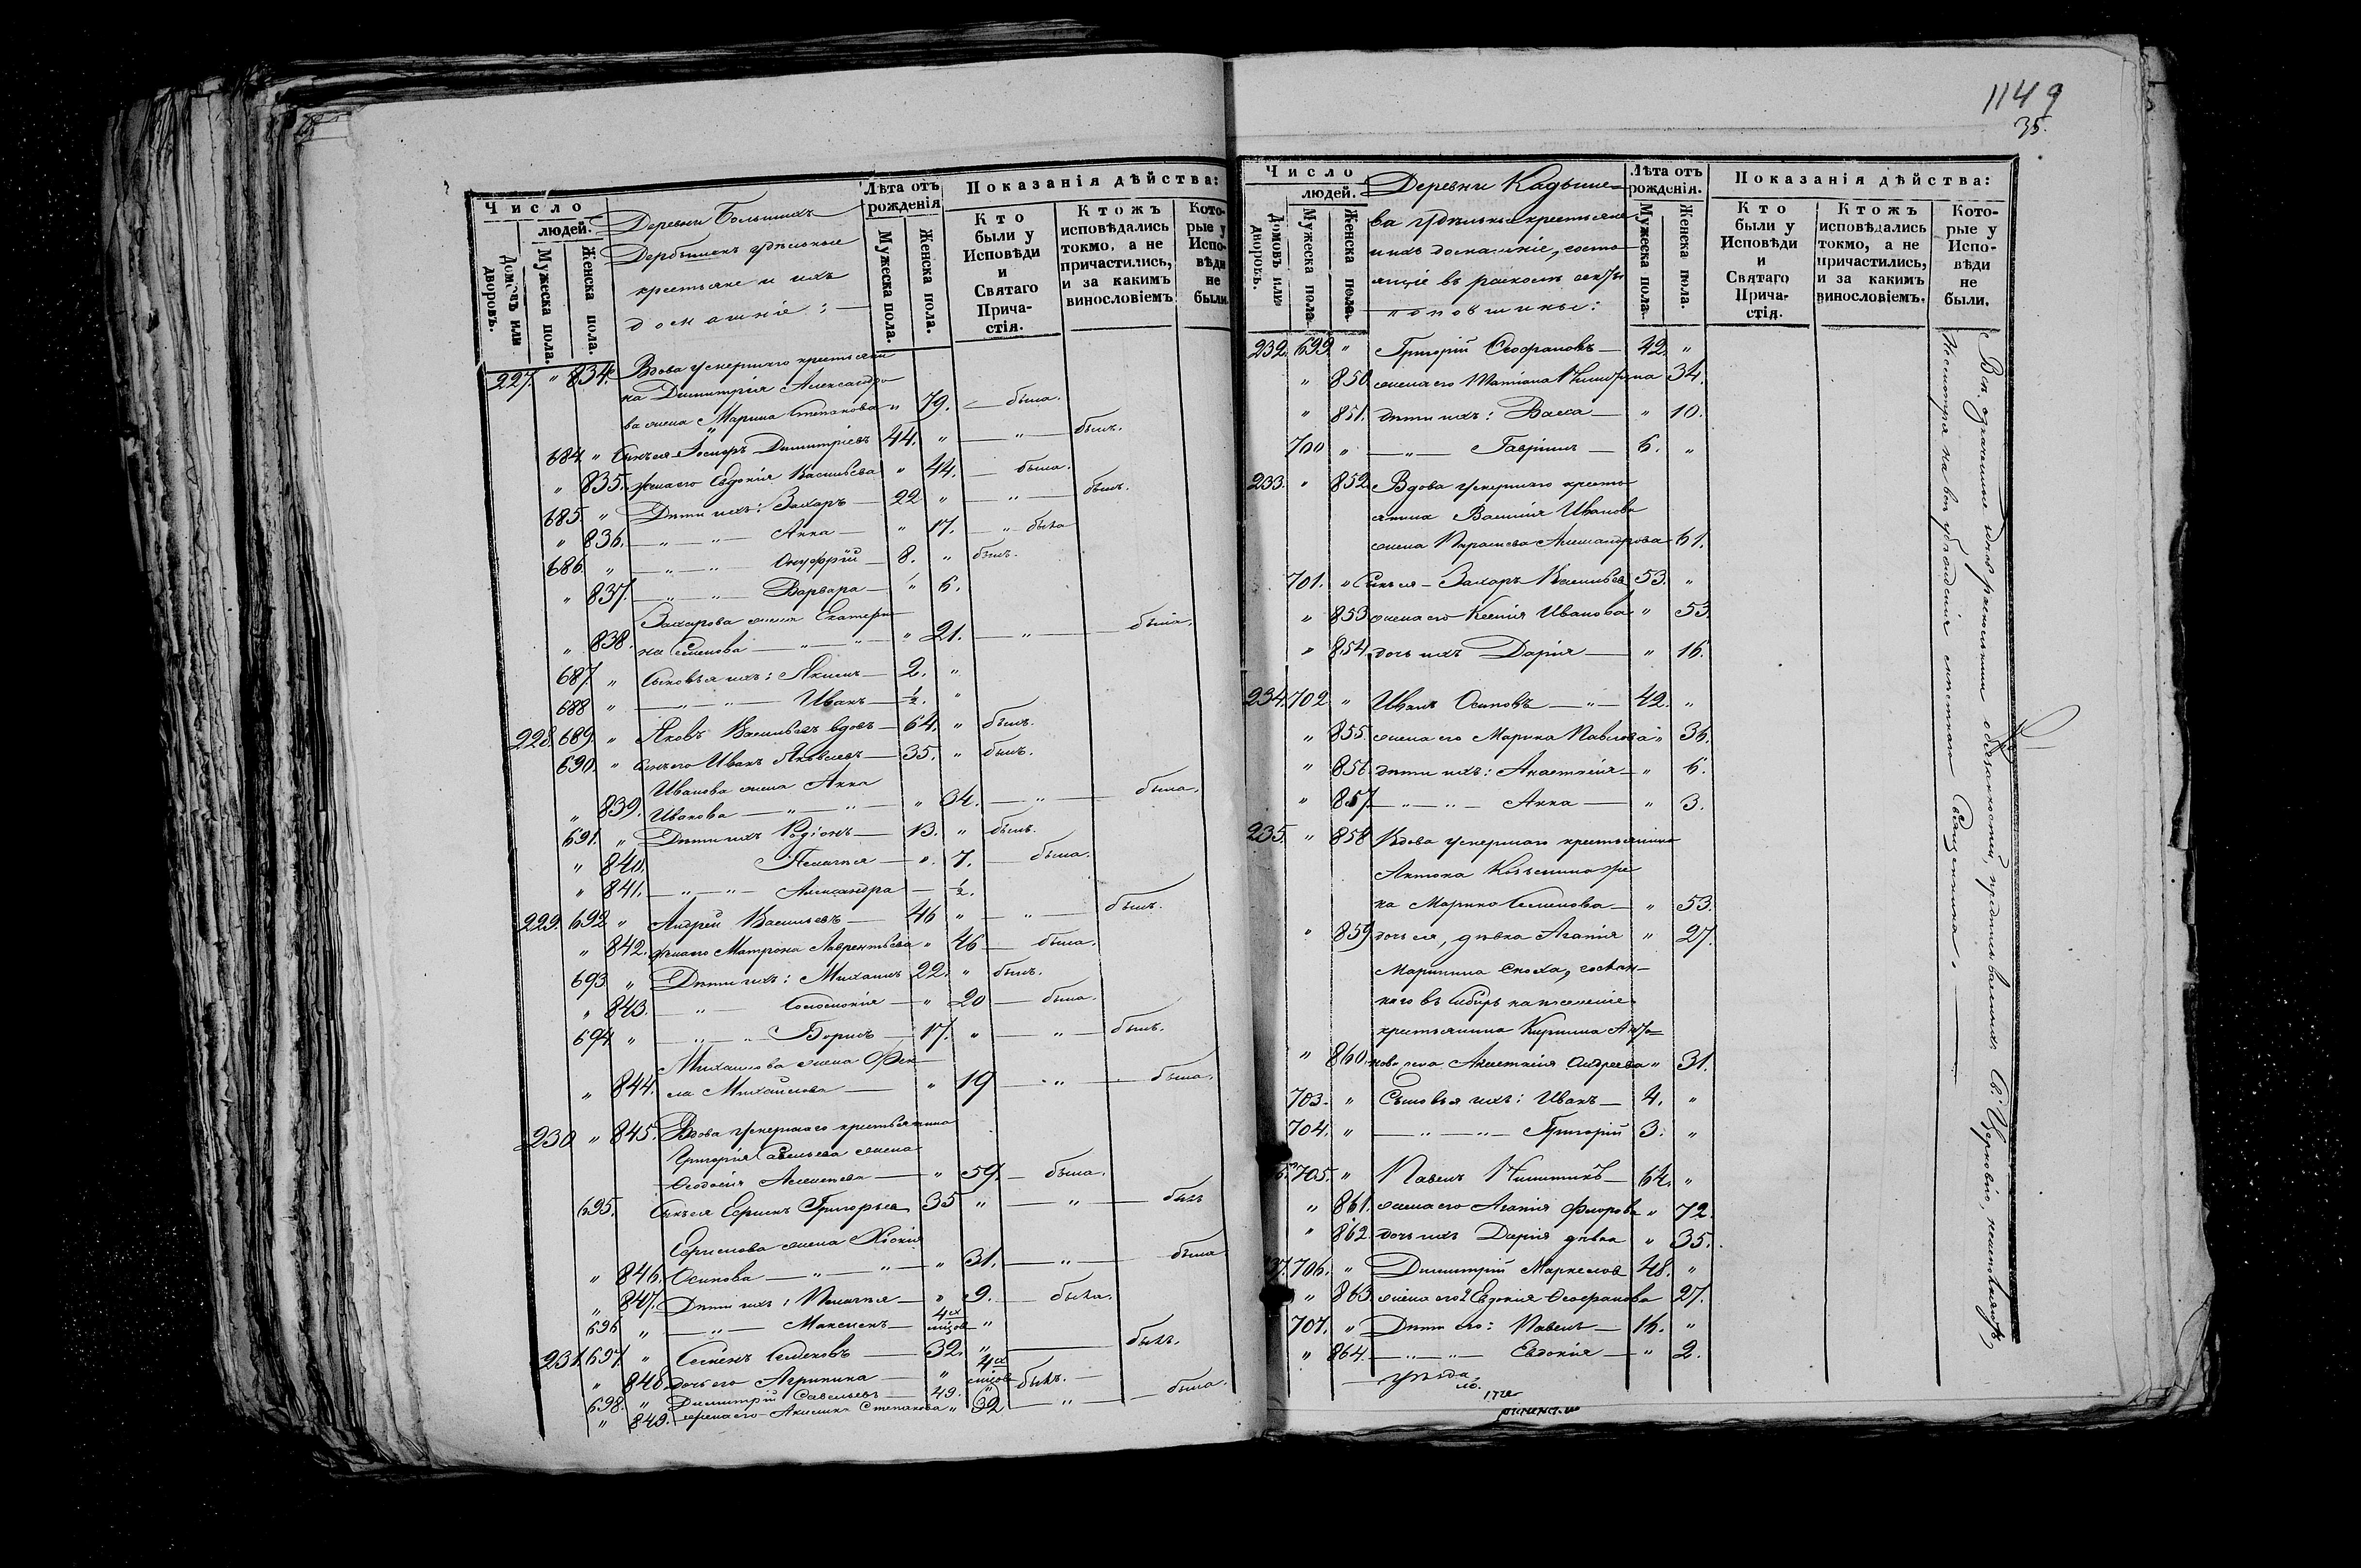 Число
людей.
Домовъ или дворовъ.
Мужеска пола.
Женска пола.
Деревни Большихъ
Дербышекъ удѣльные
крестьяне и ихъ
домашніе:
Лѣта отъ рожденія
Мужеска пола.
Женска пола.
Показанія дѣйства:
Кто были у Исповѣди и Святаго Причастія.
Ктожъ исповѣдались токмо, а не причастились, и за какимъ винословіемъ
Которые у Исповѣди не были.
227. " 834. Вдова умершаго крестьяни
на Димитрія Александро
ва жена Марина Степанова " 79. была.
684. " Сынъ ея Іосифъ Димитріевъ 44. " — " — былъ.
" 835. жена его Евдокія Васильева " 44. — была.
685. " Дѣти ихъ: Захаръ — 22 " — " — былъ.
" 836. — " — " — Анна — " 17. — " была
686. " — " — " Онуфрій — 8. " былъ.
" 837. — " — " — Варвара — " 6.
Захарова жена Екатери
" 838. на Семенова — " — " — " 21. — " — была.
687 " Сыновья ихъ: Якимъ — 2. "
688 " — " — " — Иванъ — ½. "
228. 689. " Яковъ Васильевъ вдовъ — 64. " былъ.
690. " Сынъ его Иванъ Яковлевъ — 35. " былъ.
Иванова жена Анна
" 839. Иванова — " — " — " 34. — " — была.
691. " Дѣти ихъ Родіонъ — 13. " былъ.
" 840. Пелагея — " 7. — была.
" 841. — " — " — Александра — ½.
229. 692 " Андрей Васильевъ — 46 " — " — былъ.
" 842. жена его Матрона Лаврентьева " 46 — была.
693 " Дѣти ихъ: Михаилъ 22. " былъ.
" 843. — " — Соломонія — " 20 — была.
694 " — " — " Борисъ — 17. " — " — былъ.
Михаилова жена Фек
" 844. ла Михайлова — " 19 — " — была.
230 " 845. Вдова умершаго крестьянина
Григорія Савельева жена
Феодосія Алексѣева — " 59. — была.
695. Сынъ ея Ефимъ Григорьев 35 " — " — былъ
Ефимова жена Хіонія
" 846. Осипова — " — " — " 31. — " — была
" 847. Дѣти ихъ: Пелагея — " 9. — была.
696 " — " — Максимъ — 4 "
231. 697 " Семенъ Семеновъ — 32. " — былъ.
" 848 дочь его Агрипина — " 4
698. " Димитрій Савельевъ — 49. " былъ.
" 849. жена его Акилина Степанова " 39 — " — была.
1149
35.
Число
людей.
Домовъ или дворовъ.
Мужеска пола
Женска пола.
Деревни Кадыше
ва удѣльные крестьяне
и ихъ домашніе, состо
ящіе въ расколѣ секты
поповщины:
Лѣта отъ рожденія.
Мужеска пола.
Женска пола.
Показанія дѣйства:
Кто были у Исповѣди и Святаго Причастія.
Ктожъ исповѣдались токмо, а не причастились, и за какимъ винословіемъ.
Которые у Исповѣди не были.
232. 699. " Григорій Феофановъ — 42. "
" 850. жена его 34.
" 851. дѣти ихъ: Васса — " 10.
700 " — " — Гавріилъ — 6. "
233. " 852 Вдова умершаго кресть
янина Василія Иванова
жена Парасева Александрова 61.
701. " Сынъ ея — Захаръ Васильев 53. "
" 853 жена его Ксенія Иванова " 53.
" 854. дочь ихъ Дарія — " 16.
234. 702. " Иванъ Осиповъ — " — 42. "
" 855. жена его Марина Павлова " 36.
" 856 дѣти ихъ: Анастасія — " 6.
" 857 — " — " — Анна — " 3.
235. " 858 Вдова умершаго крестьянина
Антона Козьмина же
на Марина Семенова — " 53.
" 859 дочь ея, дѣвка Агапія " 27.
Маринина сноха, сослан
наго въ Сибирь на поселеніе
крестьянина Кирилла Анто
" 860. нова жена Анастасія Андреева " 31.
703. " Сыновья ихъ: Иванъ — 4. "
704. " — " — " — Григорій 3. "
705. " Павелъ Никитинъ — 64. "
" 861. жена его Агапія Флорова " 72.
" 862. дочь ихъ Дарія дѣвка " 35.
37. 706. " Димитрій Маркеловъ 48. "
" 863 жена его 2 Евдокія Феофанова 27.
707. " Дѣти его: Павелъ — 16. "
" 864. — " — " — Евдокія — " 2.
Всѣ означенные раскольники обязанностей, предписываемыхъ Св. Церковію, неисполняютъ,
Несмотря на всѣ убѣжденія мѣстнаго Священника.